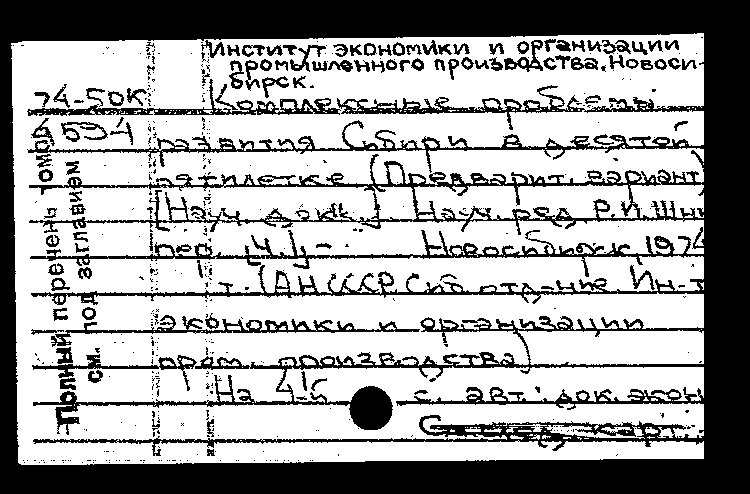 Институт экономики и организации
промышленного производства. Новоси-
бирск.
74-50К Комплексные проблемы
4594 развития Сибири в десятой
пятилетке (Предварит. вариант)
[Науч. докл.] Науч. ред. Р.И. Шни
пер. [Ч.1] - Новосибирск, 1974
т. (АН СССР Сиб. отд-ние. Ин-т
экономики и организации
пром. производства)
На 4-й с. авт.: док. экон
См. след. карт.
Полный перечень томов
см. под заглавием